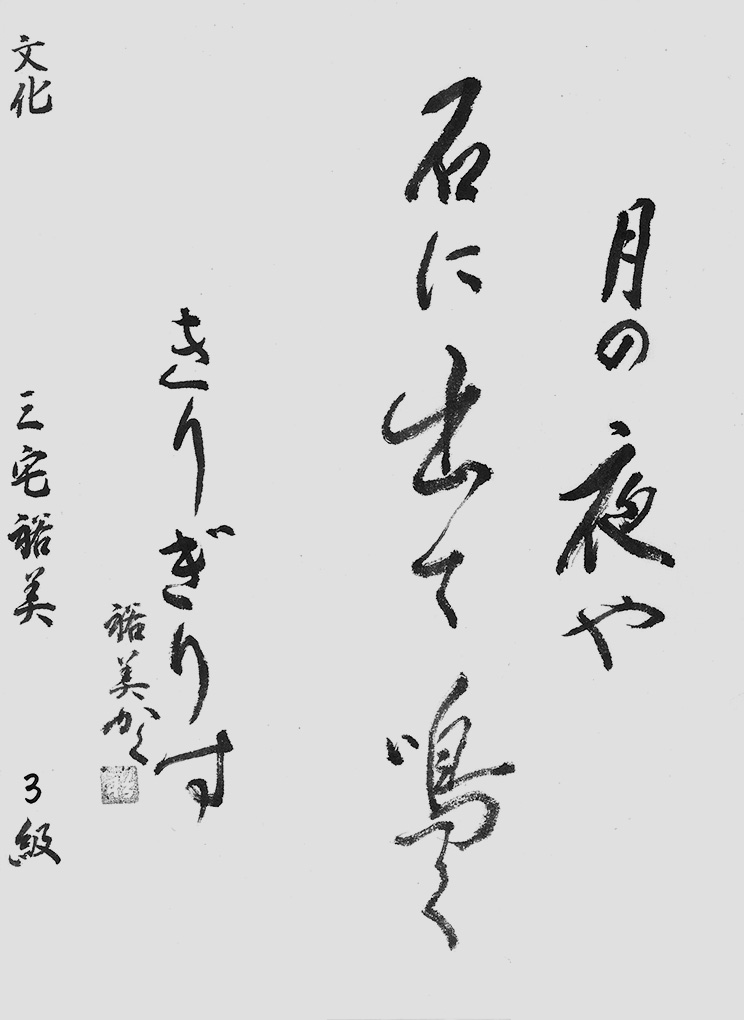 月の夜や
石に出て鳴く
きりぎりす
裕美かく
文化 三宅裕美 3級